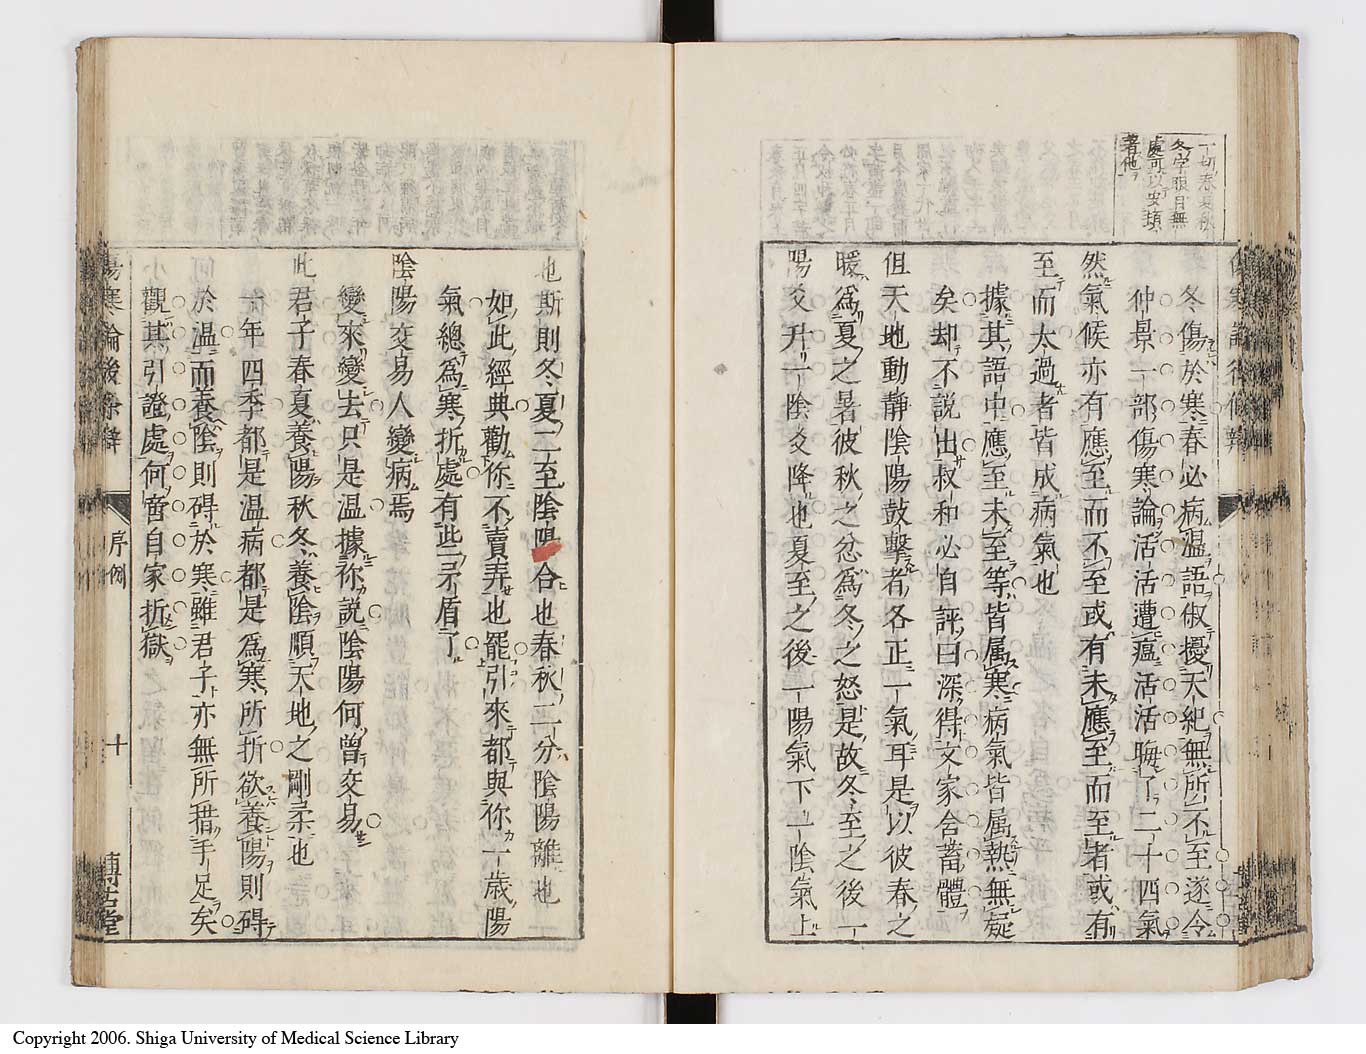 丁切春夏秋
冬字眼目無
處可以安頓
著他
冬傷於寒春必病温語俶擾天紀無所不至遂令
仲景一部傷寒論活活遭瘟活活晦了二十四氣
然氣候亦有應至而不至或有未應至而至者或有
至而太過者皆成病氣也
據其語中應至未至等皆属寒病氣皆属熱無疑
矣却不説出叔和必自評曰深得文家含蓄體
但天地動靜陰陽鼓擊者各正一氣耳是以彼春之
暖爲夏之暑彼秋之忿爲冬之怒是故冬至之後一
陽爻升一陰爻降也夏至之後一陽氣下一陰氣上
也斯則冬夏二至陰陽合也春秋二分陰陽離也
如此經典勸你不賣弄也罷引來都與你一歲陽
氣總爲寒折處有些矛盾了
陰陽交易人變病焉
變來變去只是温據你説陰陽何曾交易
此君子春夏養陽秋冬養陰順天地之剛柔也
一年四季都是温病都是爲寒所折欲養陽則碍
於温而養陰則碍於寒雖君子亦無所措手足矣
觀其引證處何啻自家折獄
傷寒論後條辨
序例
十
博古堂
Copyright 2006. Shiga University of Medical Science Library